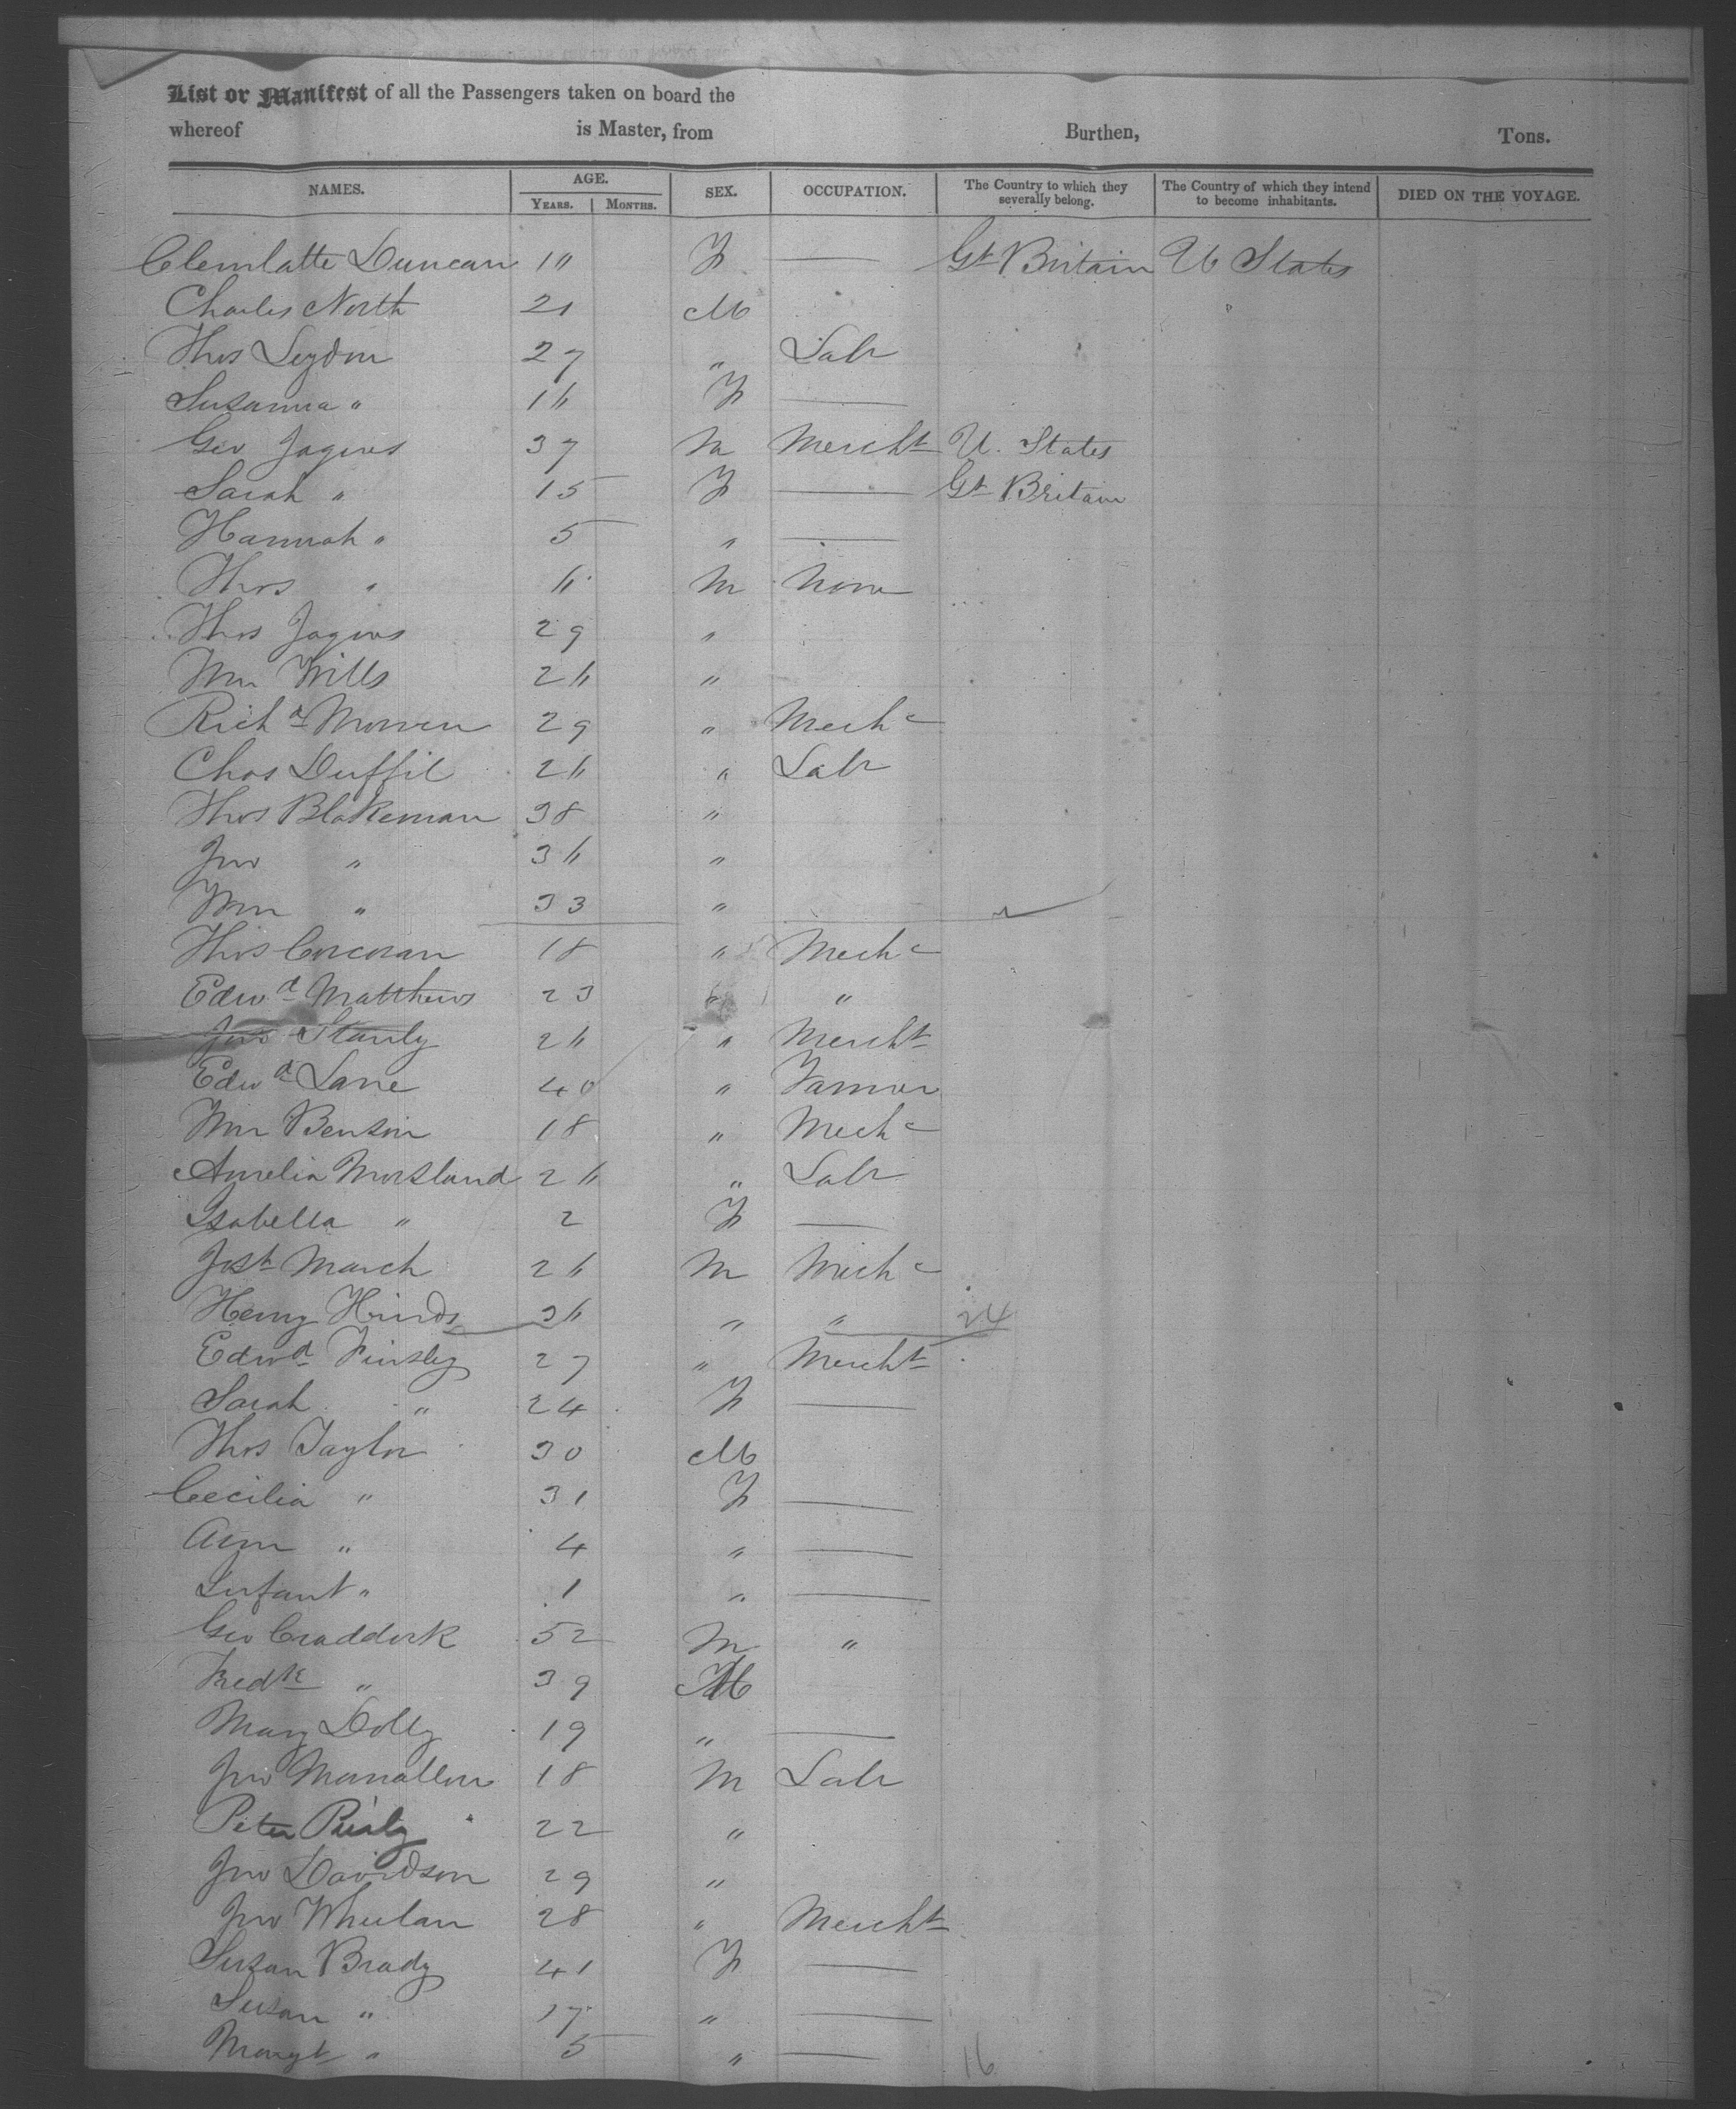 List or Manifest of all the Passengers taken on board the
whereof is Master, from Burthen, Tons.
NAMES. AGE. YEARS. MONTHS. SEX. OCCUPATION. The Country to which they severally belong. The Country of which they intend to become inhabitants. DIED ON THE VOYAGE.
Duncan F — Gt Britain U States
Charles North 21 M
Thos Leydon 27 " Labr
Susanna " 16 F —
Geo Jaques 37 M Mercht U. States
Sarah " 15 F — Gt Britain
Hannah " 5 " —
Thos " 6 M None
Thos Jaques 29 "
Wm Wills 26 "
Richd 29 " Mechc
Chas Duffil 26 " Labr
Thos Blakeman 38 "
Jno " 36 "
Wm " 33 "
Thos Corcoran 18 " Mechc
Edwd Matthews 23 " "
Jno Stanly 26 " Mercht
Edwd Lane 40 " Farmer
Wm Benson 18 " Mechc
Amelia 26 " Labr
Isabella " 2 F —
Josh March 26 M Mechc
Henry Hinds 36 " " 24
Edwd Tinsley 27 " Mercht
Sarah " 24 F —
Thos Taylor 30 M
Cecilia " 31 F —
Ann " 4 " —
Infant " 1 " —
Geo Craddock 52 M "
Fredk " 39 M
Mary Dolly 19 " —
Jno 18 M Labr
Peter 22 "
Jno Davidson 29 "
Jno Whelan 28 " Mercht
Susan Brady 41 F —
Susan " 17 " —
Margt " 5 " — 16